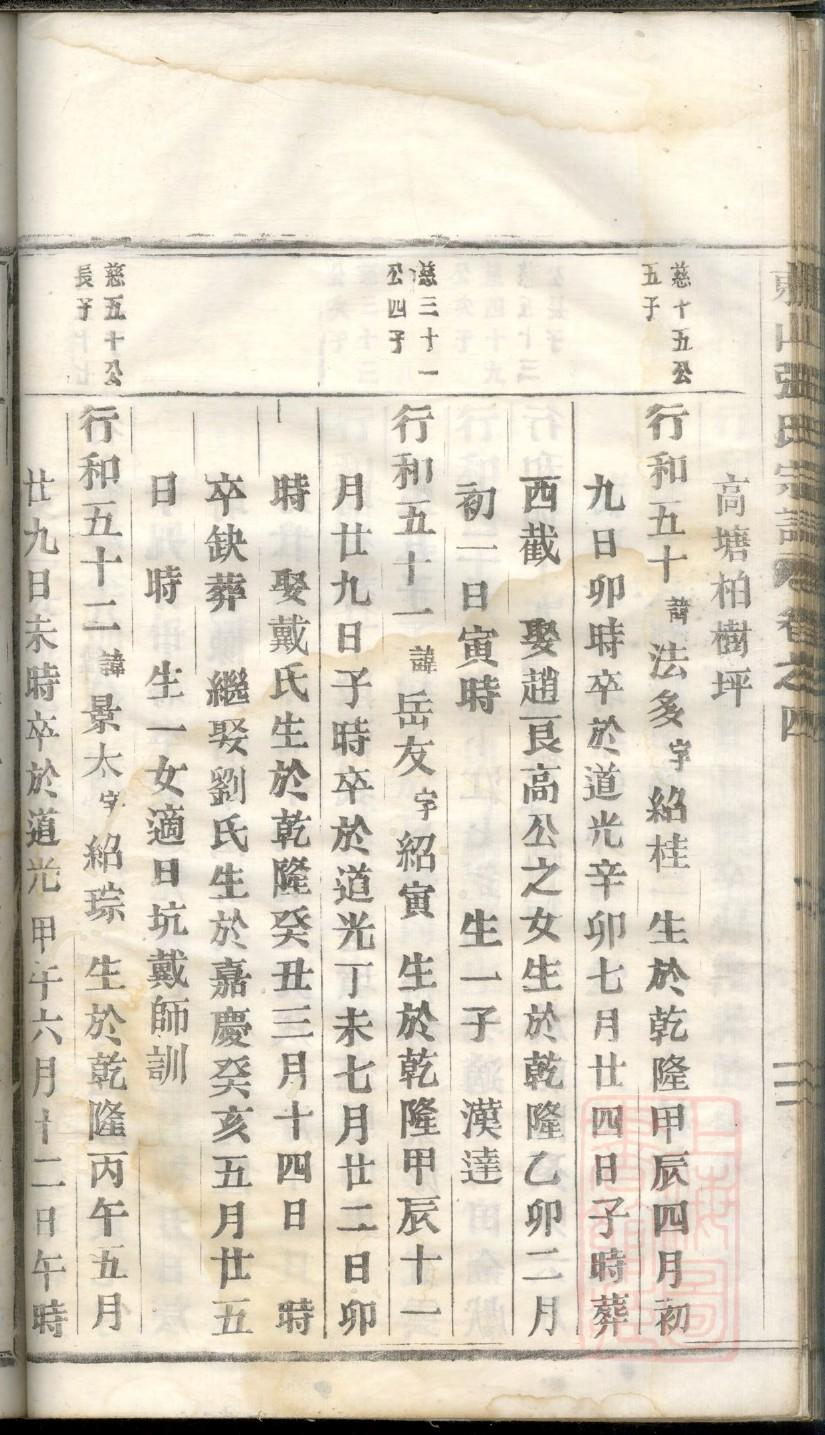 山張氏宗譜卷之四
高塘柏樹坪
慈十五公
五子
行和五十諱法多字紹桂 生於乾隆甲辰四月初
九日卯時卒於道光辛卯七月廿四日子時葬
西截 娶趙艮高公之女生於乾隆乙卯二月
初一日寅時 生一子 漢達
慈三十一
公四子
行和五十一諱岳友字紹寅 生於乾隆甲辰十一
月廿九日子時卒於道光丁未七月廿二日卯
時 娶戴氏生於乾隆癸丑三月十四日 時
卒缺葬 繼娶劉氏生於嘉慶癸亥五月廿五
日 時 生一女適日坑戴師訓
慈五十公
長子
行和五十二諱景太字紹琮 生於乾隆丙午五月
廿九日未時卒於道光甲午六月十二日午時